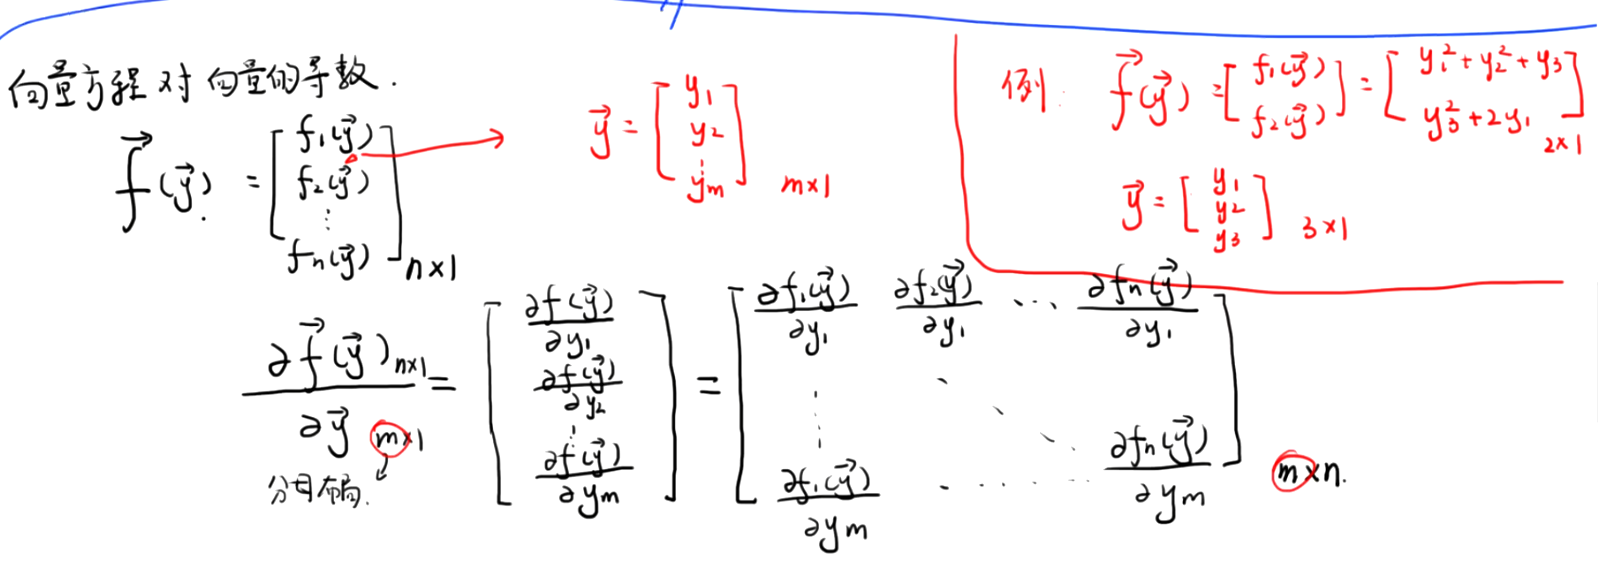 向量方程对向量的导数.
$\vec{f}(\vec{y}) = \begin{bmatrix} f_1(\vec{y}) \\ f_2(\vec{y}) \\ \vdots \\ f_n(\vec{y}) \end{bmatrix}_{n×1}$ → $\vec{y} = \begin{bmatrix} y_1 \\ y_2 \\ \vdots \\ y_m \end{bmatrix}_{m×1}$
例 $\vec{f}(\vec{y}) = \begin{bmatrix} f_1(\vec{y}) \\ f_2(\vec{y}) \end{bmatrix} = \begin{bmatrix} y_1^2 + y_2^2 + y_3 \\ y_3^2 + 2y_1 \end{bmatrix}_{2×1}$
$\vec{y} = \begin{bmatrix} y_1 \\ y_2 \\ y_3 \end{bmatrix}_{3×1}$
$\frac{\partial \vec{f}(\vec{y})_{n×1}}{\partial \vec{y}_{m×1}} = \begin{bmatrix} \frac{\partial f(\vec{y})}{\partial y_1} \\ \frac{\partial f(\vec{y})}{\partial y_2} \\ \vdots \\ \frac{\partial f(\vec{y})}{\partial y_m} \end{bmatrix} = \begin{bmatrix} \frac{\partial f_1(\vec{y})}{\partial y_1} & \frac{\partial f_2(\vec{y})}{\partial y_1} & \cdots & \frac{\partial f_n(\vec{y})}{\partial y_1} \\ \vdots & \ddots & & \\ \frac{\partial f_1(\vec{y})}{\partial y_m} & \cdots & \cdots & \frac{\partial f_n(\vec{y})}{\partial y_m} \end{bmatrix}_{m×n.}$
分母布局.